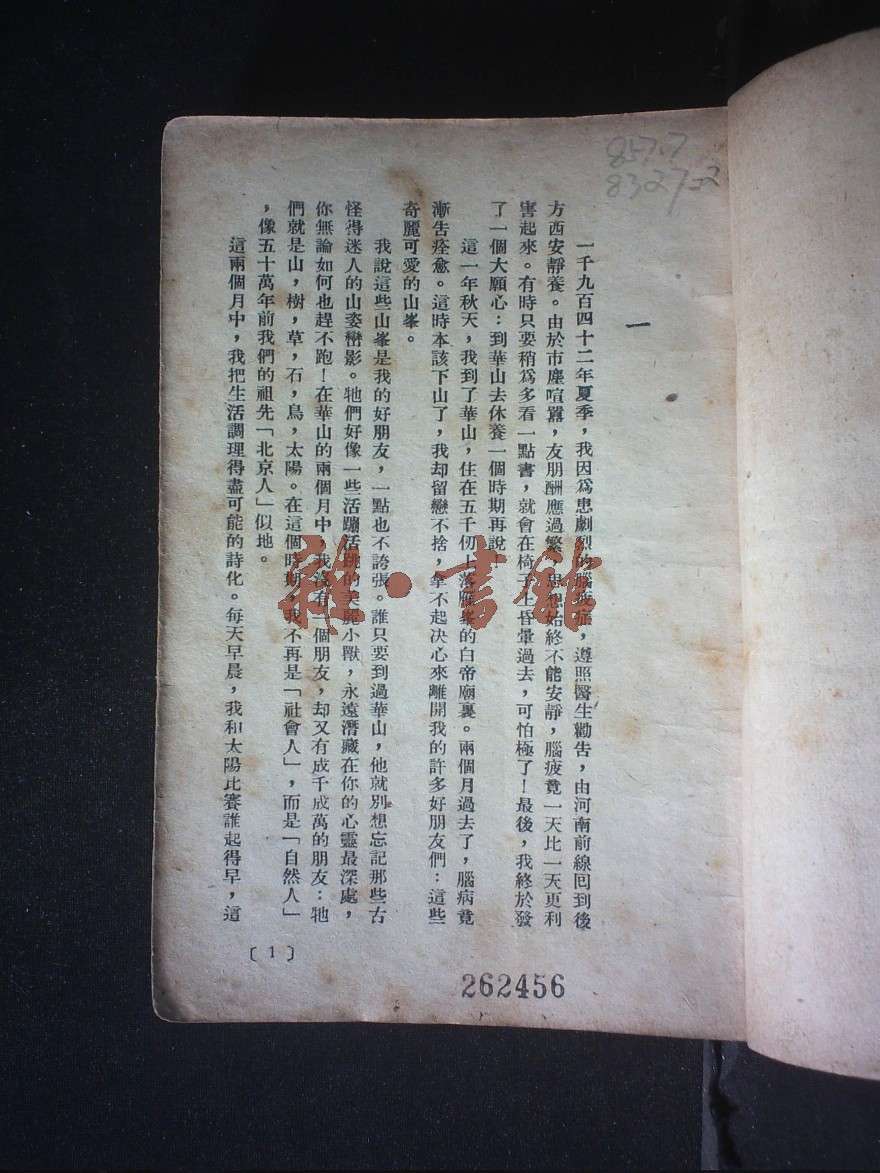 857.7
8327-2
一
一千九百四十二年夏季，我因爲患劇烈的腦疲症，遵照醫生勸告，由河南前線回到後
方西安靜養。由於市塵喧囂，友朋酬應過繁，思想始終不能安靜，腦疲竟一天比一天更利
害起來。有時只要稍爲多看一點書，就會在椅子上昏暈過去，可怕極了！最後，我終於發
了一個大願心：到華山去休養一個時期再說。
這一年秋天，我到了華山，住在五千仞上落雁峯的白帝廟裏。兩個月過去了，腦病竟
漸告痊愈。這時本該下山了，我却留戀不捨，拿不起決心來離開我的許多好朋友們：這些
奇麗可愛的山峯。
我說這些山峯是我的好朋友，一點也不誇張。誰只要到過華山，他就別想忘記那些古
怪得迷人的山姿巒影。牠們好像一些活蹦活跳的美麗小獸，永遠潛藏在你的心靈最深處，
你無論如何也趕不跑！在華山的兩個月中，我沒有一個朋友，却又有成千成萬的朋友：牠
們就是山，樹，草，石，鳥，太陽。在這個時期，我不再是「社會人」，而是「自然人」
，像五十萬年前我們的祖先「北京人」似地。
這兩個月中，我把生活調理得盡可能的詩化。每天早晨，我和太陽比賽誰起得早，這
〔1〕
262456
雜·書館